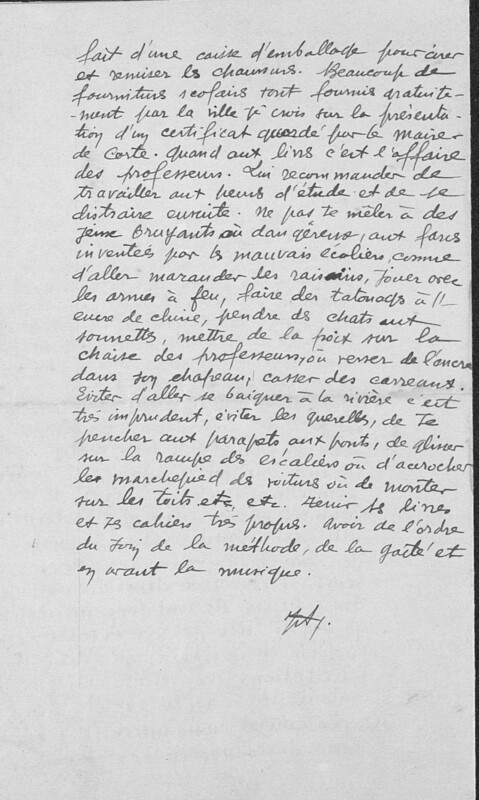 fait d'une caisse d'emballage pour cirer
et remiser les chaussures. Beaucoup de
fournitures scolaires sont fournis gratuite-
ment par la ville je crois sur la présenta-
tion d'un certificat par le maire
de Corte. Quand aux livres c'est l'affaire
des professeurs. Lui recommander de
travailler aux heures d'étude et de se
distraire ensuite. Ne pas se mêler à des
jeux bruyants où dangereux, aux farces
inventées par les mauvais écoliers, comme
d'aller marauder les raisins, jouer avec
les armes à feu, faire des tatouages à l'
encre de chine, pendre des chats aux
sonnettes, mettre de la poix sur la
chaise des professeurs, où verser de l'encre
dans son chapeau, casser des carreaux.
Eviter d'aller se baigner à la rivière c'est
très imprudent, éviter les querelles, de se
pencher aux parapets aux ponts, de glisser
sur la rampe des escaliers où d'accrocher
les marchepied des voitures où de monter
sur les toits etc, etc. Tenir ses livres
et ses cahiers très propres. Avoir de l'ordre
du soin de la méthode, de la gaîté et
en avant la musique.